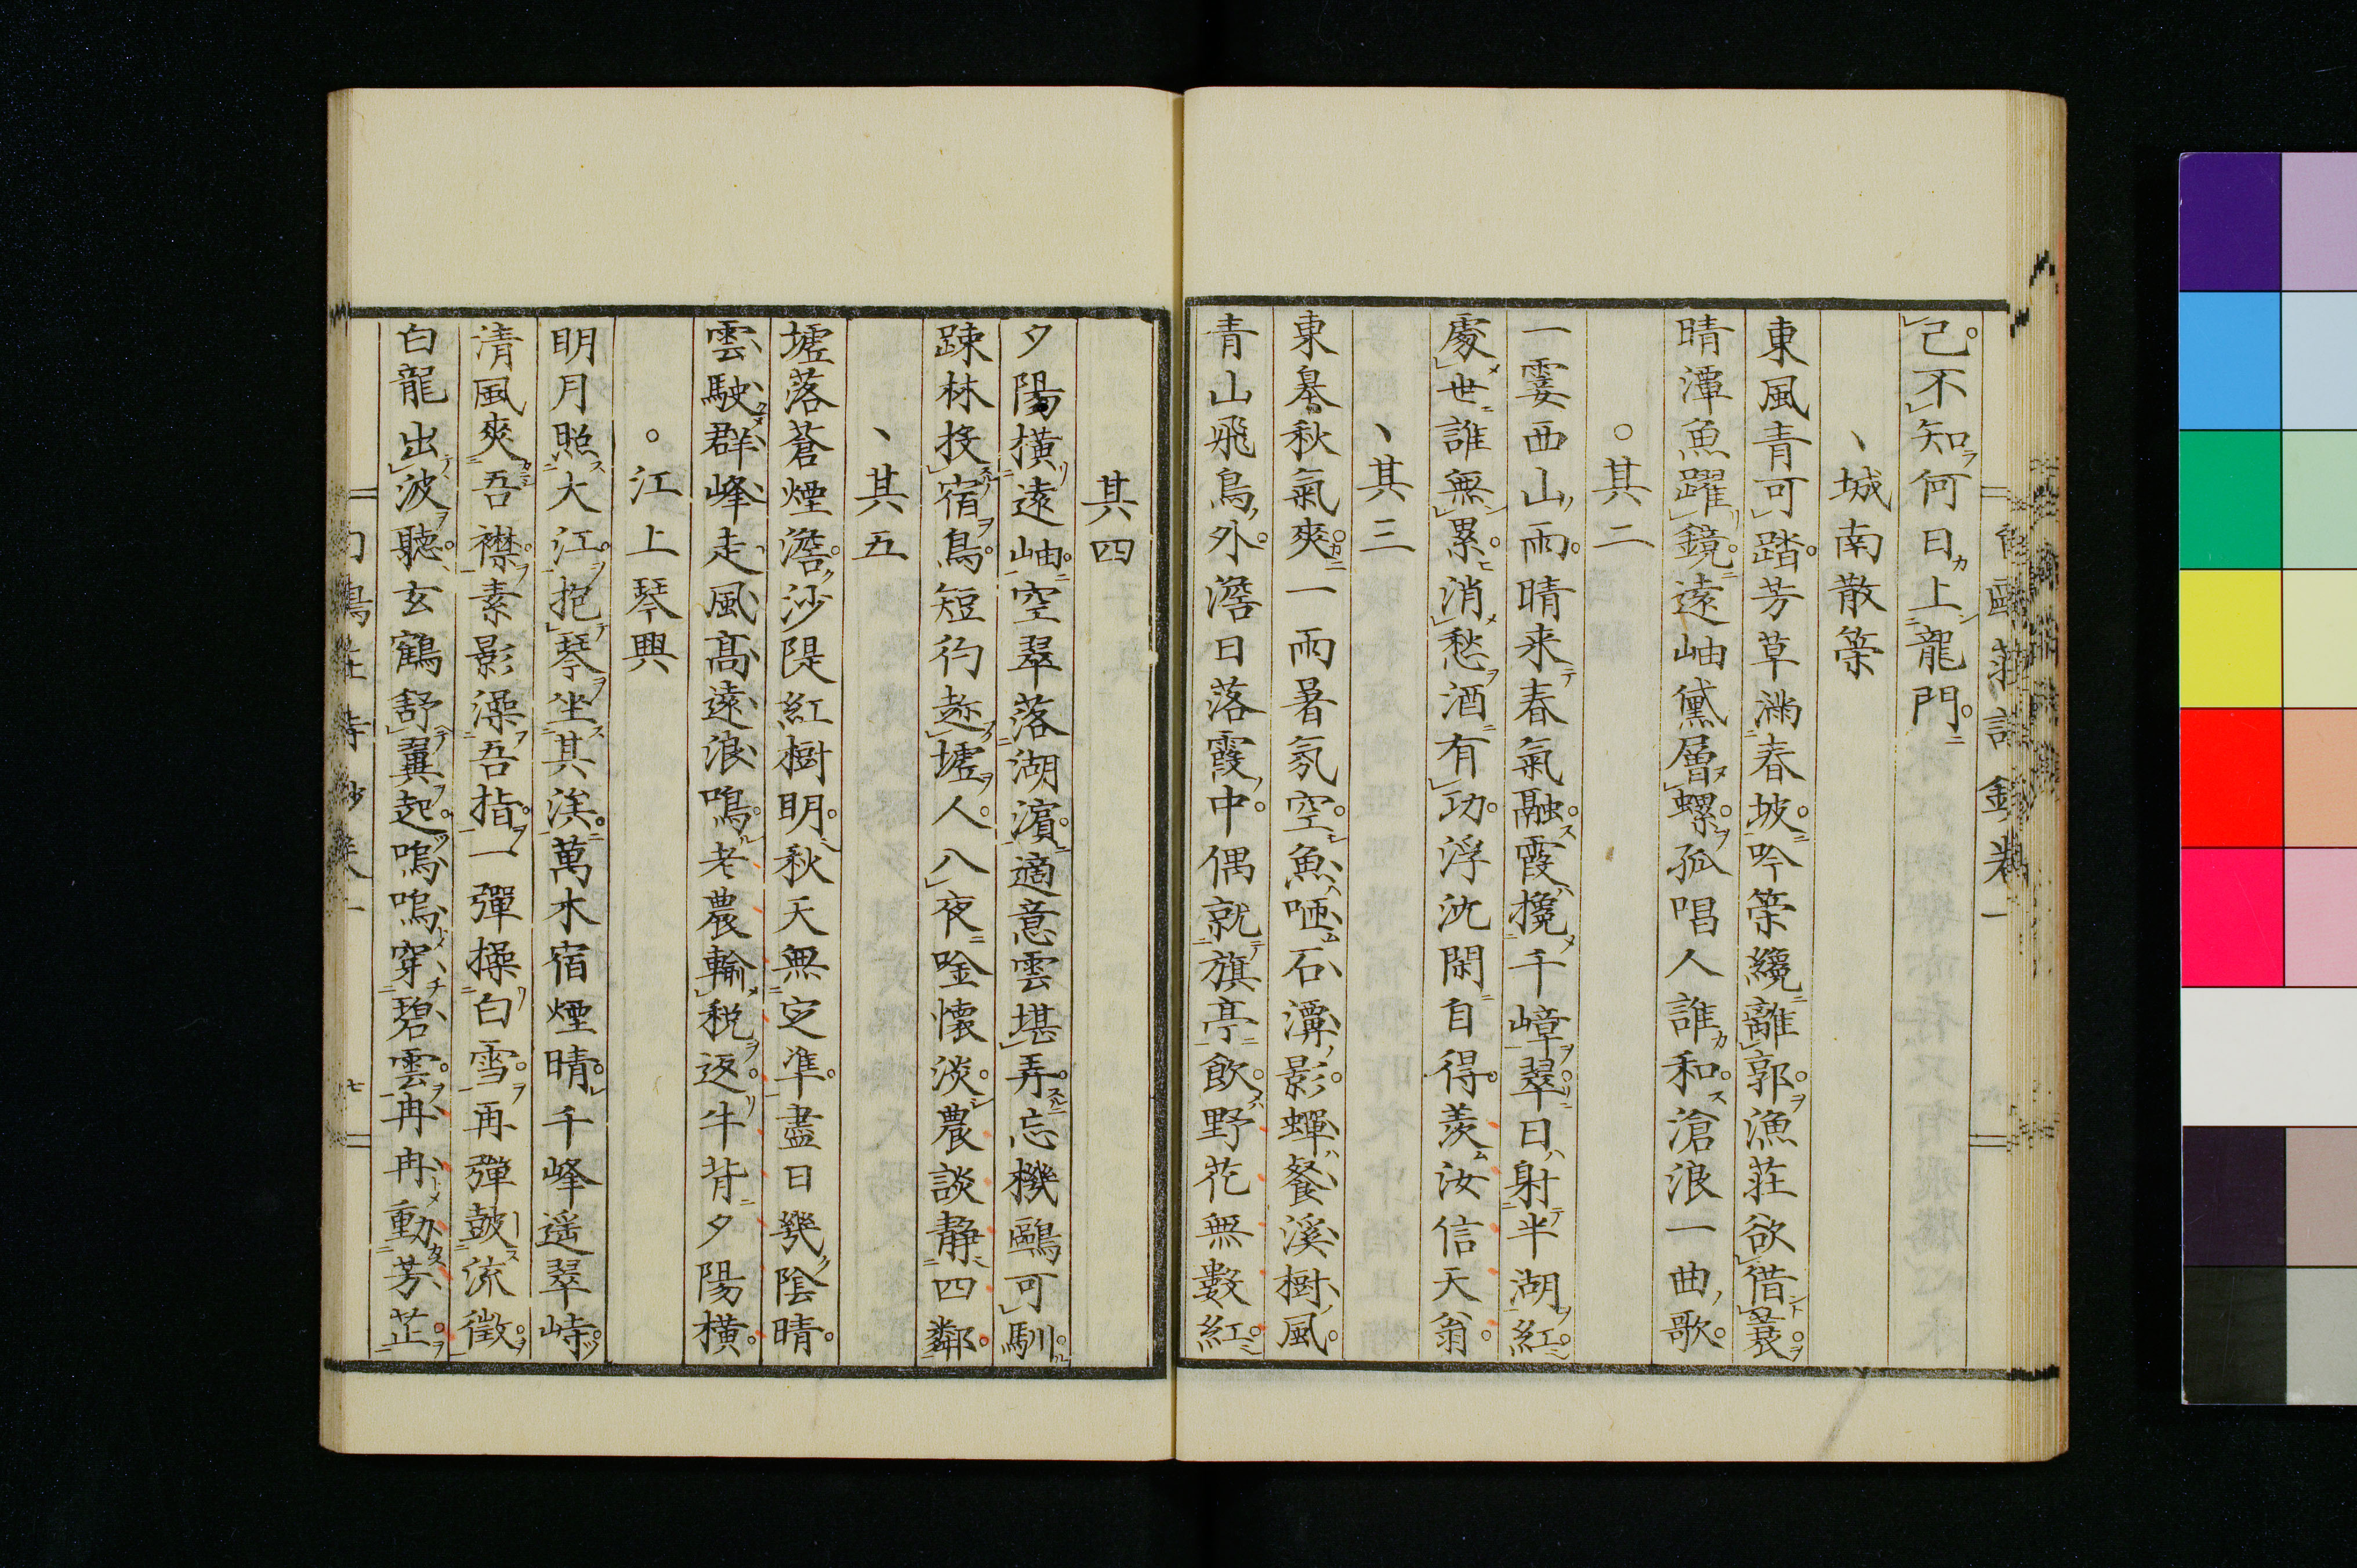 己不知何日上龍門
城南散策
東風青可踏芳草滿春坡吟筞纔離郭漁莊欲借蓑
晴潭魚躍鏡遠岫黛層螺孤唱人誰和滄浪一曲歌
其二
一霎西山雨晴来春氣融霞攙千嶂翠日射半湖紅
處世誰無累消愁酒有功浮沈閑自得羨汝信天翁
其三
東皋秋氣爽一雨暑氛空魚唖石潭影蟬餐溪樹風
青山飛鳥外澹日落霞中偶就旗亭飲野花無數紅
其四
夕陽横遠岫空翠落湖濱適意雲堪弄忘機鷗可馴
踈林投宿鳥短彴趂墟人八夜唫懐淡農談静四鄰
其五
墟落蒼煙澹沙隄紅樹明秋天無定準盡日幾陰晴
雲駛群峰走風高遠浪鳴老農輸稅返牛背夕陽横
江上琴興
明月照大江抱琴坐其涘萬水宿煙晴千峰遥翠峙
清風爽吾襟素影澡吾指一彈操白雪再彈鼓流徵
白龍出波聽玄鶴舒翼起嗚嗚穿碧雲冉冉動芳芷